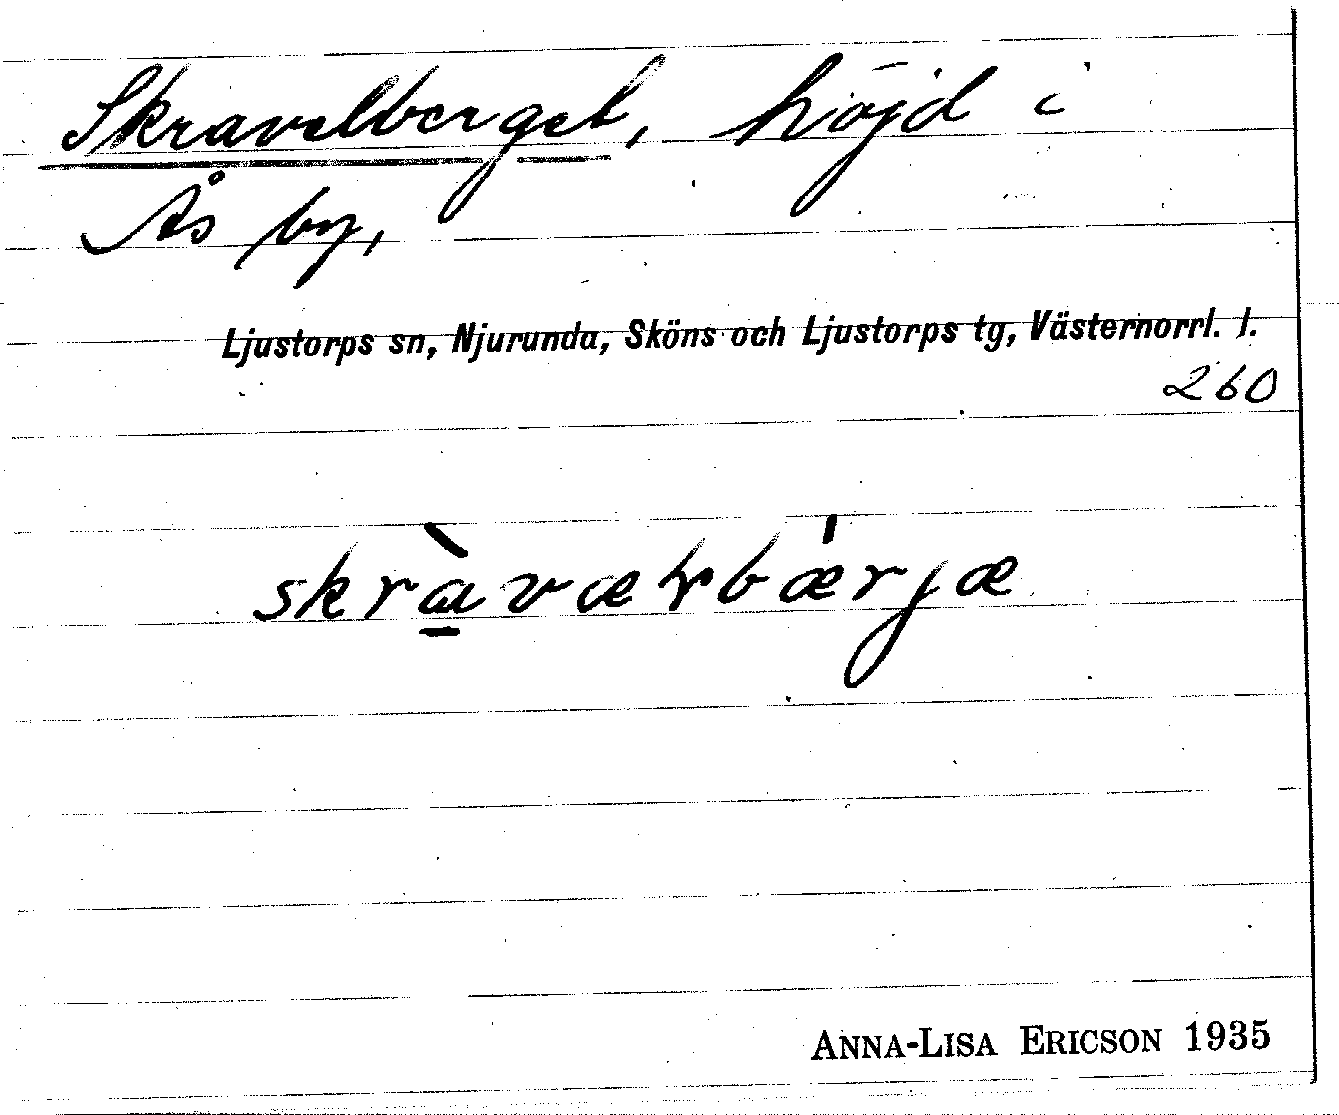 Skravelberget, höjd i
Ås by,
Ljustorps sn, Njurunda, Sköns och Ljustorps tg, Västernorrl. l.
260
ANNA-LISA ERICSON 1935